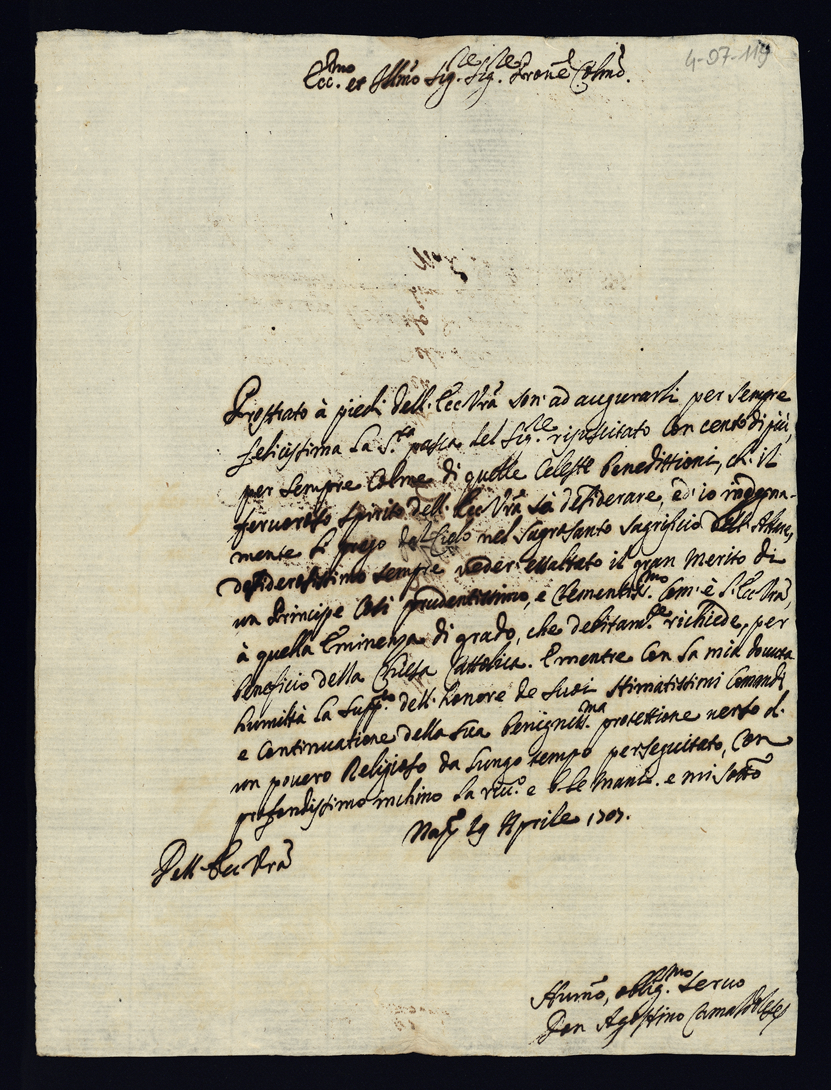 4-07-119
Ecc.mo et Illmo Sig. Sig.re Prone Colmo.
Prostrato à piedi dell. Ecc Vra son' ad augurarli per sempre
felicissima la S.ta pasca del Sig.re risuscitato con cento di più,
per sempre colme di quelle celeste benedittioni, ch' il
fervoroso spirito dell. Ecc Vra sà desiderare, ed' io
mente li prego dal Cielo nel sagrosanto sagrificio dell' Altare,
desiderosissimo sempre veder essaltato il gran merito di
un Principe così prudentissimo, e clementiss.mo com' è S. Ecc Vra,
à quella Eminenza di grado, che debitam.te richiede, per
beneficio della Chiesa Cattolica. E mentre con la mia dovuta
humiltà la supp.co dell' honore de suoi stimatissimi comandi
e continuatione della sua benigniss.ma protettione verso d'
un povero Religioso da lungo tempo perseguitato, con
profondissimo inchino la riv.o e b. le mani. e mi sotto
Nap. 29 Aprile 1707.
Dell. Ecc Vra
Humo, oblig.mo servo
Don Agostino Camaldolese